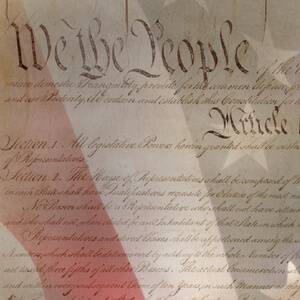 We the People of the
insure domestic Tranquility, provide for the common defence, pro
and our Posterity, do ordain and establish this Constitution for
Article
Section. 1. All legislative Powers herein granted shall be vested
of Representatives.
Section. 2. The House of Representatives shall be composed of
in each State shall have Qualifications requisite for Electors of the most
No Person shall be a Representative who shall not have
who shall not, when elected, be an Inhabitant of that State in which
Representatives and direct Taxes shall be apportioned among the
Numbers, which shall be determined by adding to the whole Number
not taxed, three fifths of all other Persons. The actual Enumeration
and within every subsequent Term of ten Years, in such Manner as